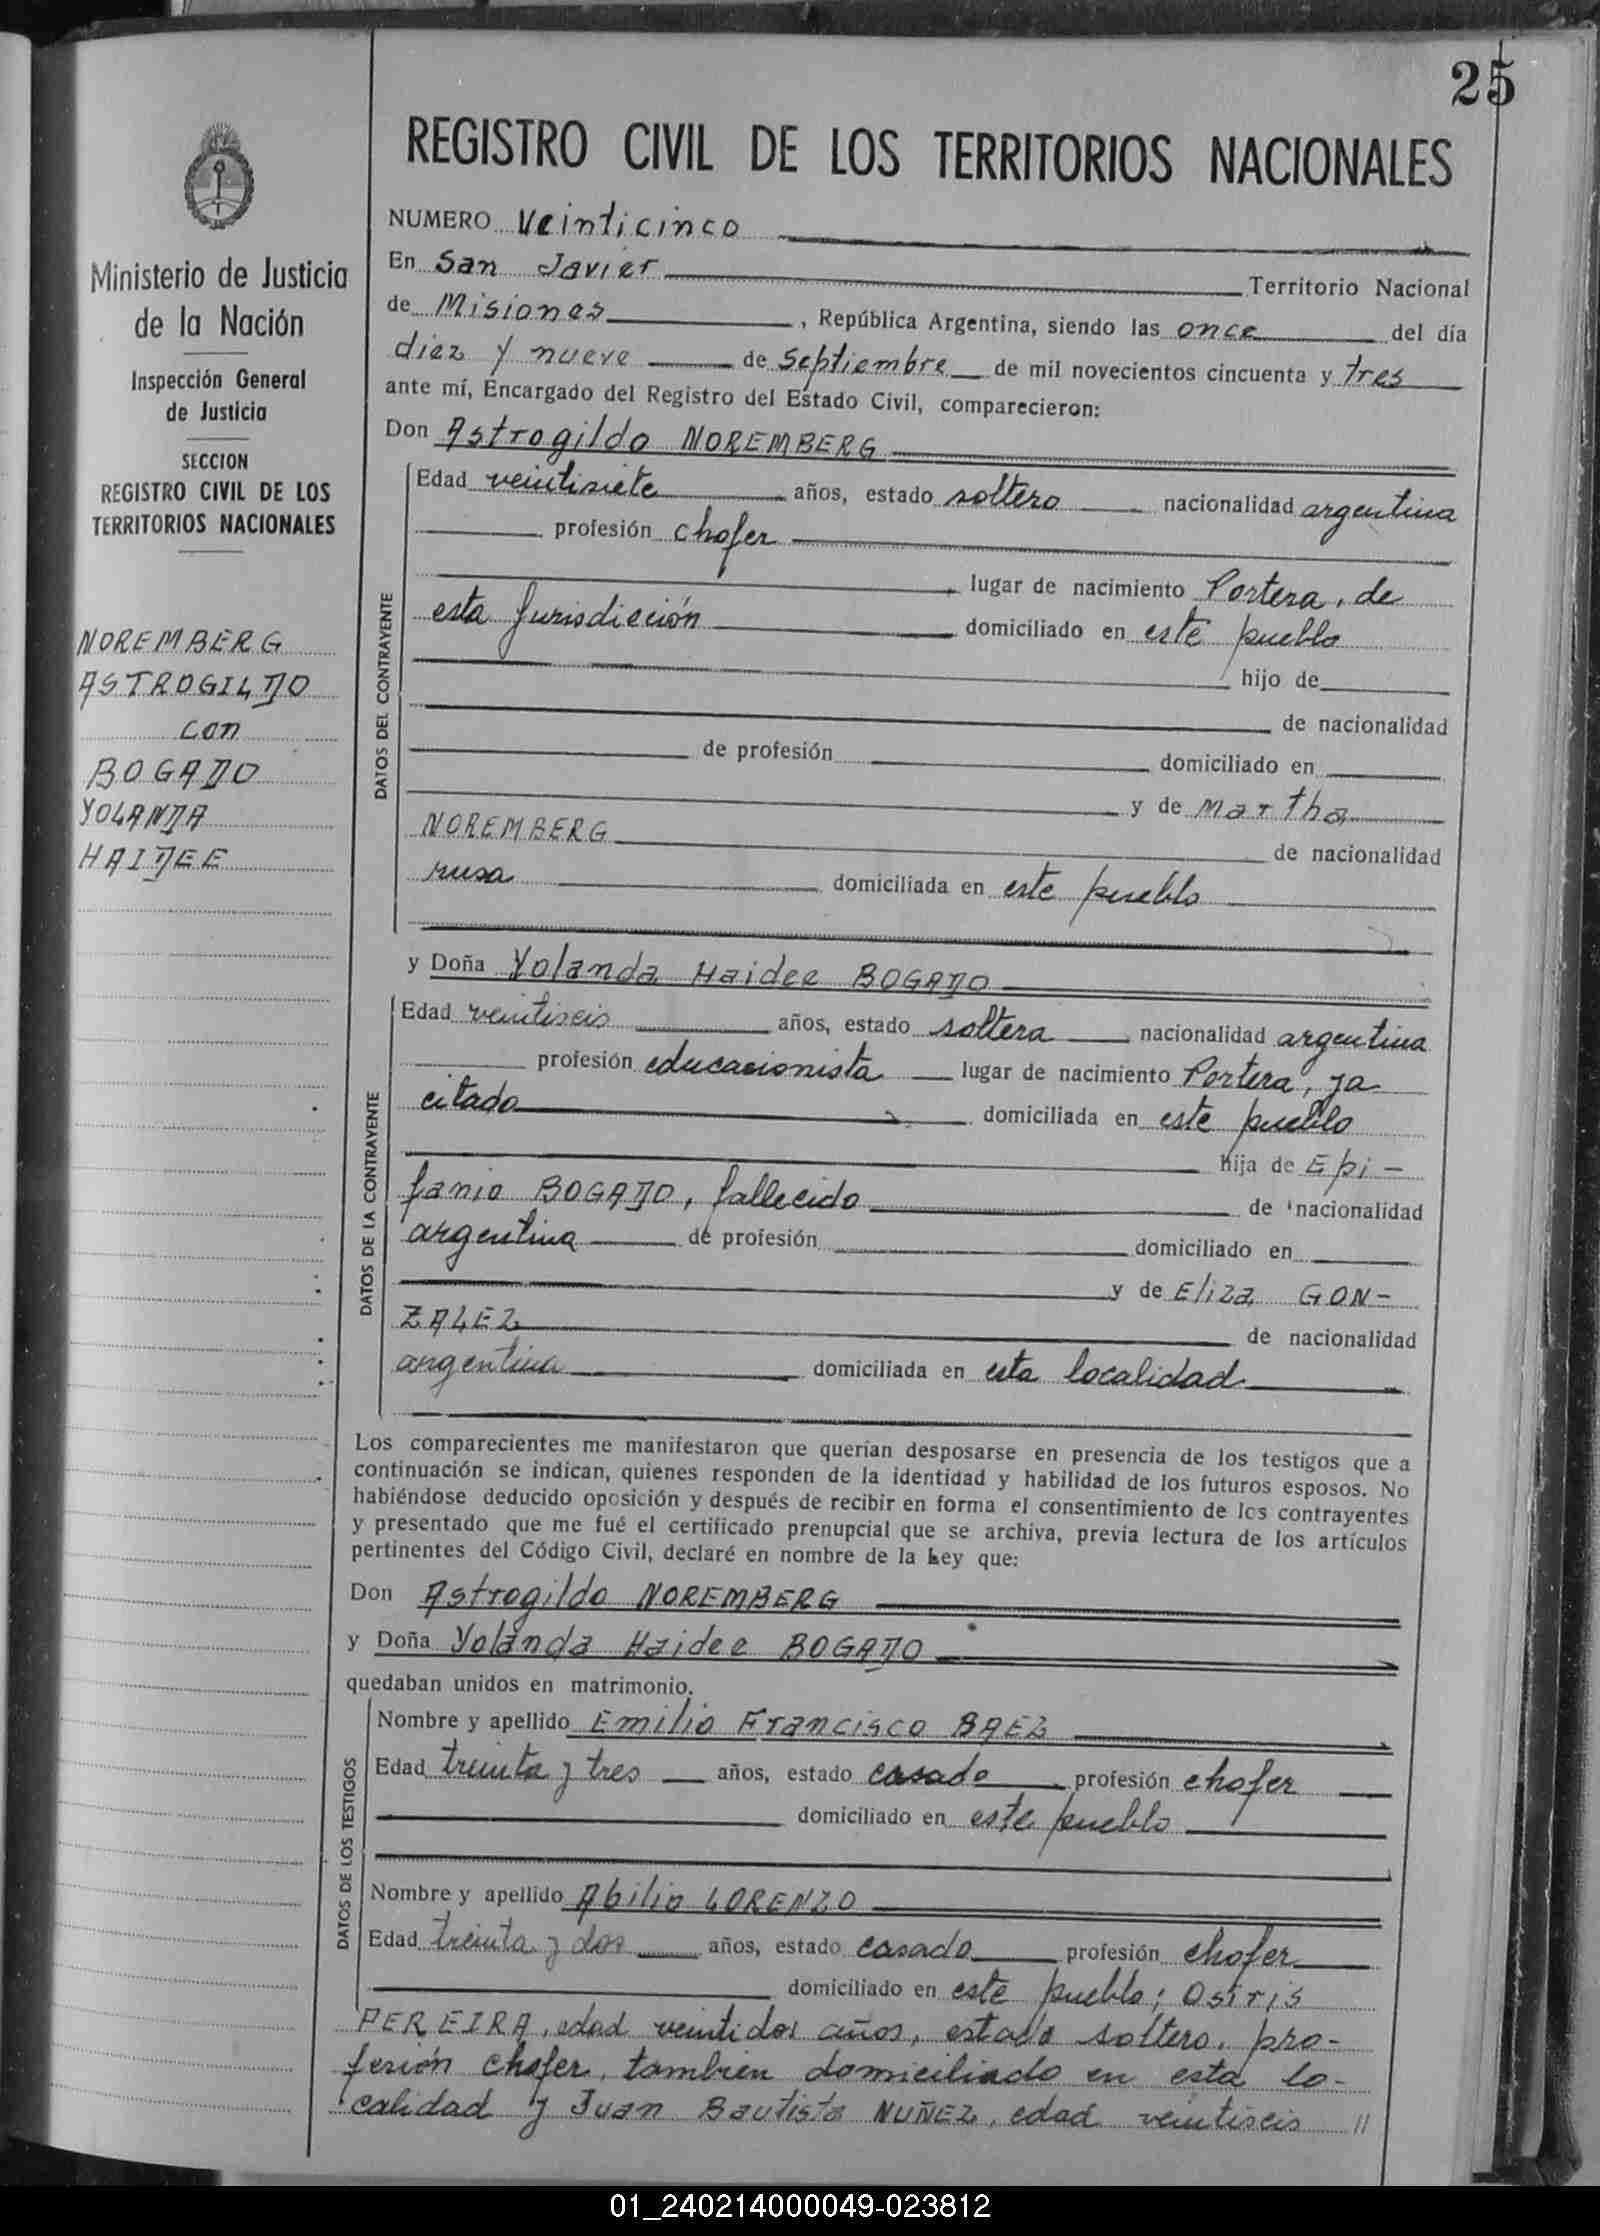 25
REGISTRO CIVIL DE LOS TERRITORIOS NACIONALES
Ministerio de Justicia
de la Nación
Inspección General
de Justicia
SECCION
REGISTRO CIVIL DE LOS
TERRITORIOS NACIONALES
NOREMBERG
ASTROGILDO
con
BOGADO
YOLANDA
HAIDEE
NUMERO Veinticinco
En San Javier Territorio Nacional
de Misiones, República Argentina, siendo las once del día
diez y nueve de Septiembre de mil novecientos cincuenta y tres
ante mí, Encargado del Registro del Estado Civil, comparecieron:
Don Astrogildo NOREMBERG
DATOS DEL CONTRAYENTE
Edad veintisiete años, estado soltero nacionalidad argentina
profesión chofer
lugar de nacimiento Portera, de
esta Jurisdicción domiciliado en este pueblo
hijo de
de nacionalidad
de profesión domiciliado en
y de Martha
NOREMBERG de nacionalidad
rusa domiciliada en este pueblo
y Doña Yolanda Haidee BOGADO
DATOS DE LA CONTRAYENTE
Edad veintiseis años, estado soltera nacionalidad argentina
profesión educacionista lugar de nacimiento Portera, ya
citado domiciliada en este pueblo
hija de Epi-
fanio BOGADO, fallecido de nacionalidad
argentina de profesión domiciliado en
y de Eliza GON-
ZALEZ de nacionalidad
argentina domiciliada en esta localidad
Los comparecientes me manifestaron que querían desposarse en presencia de los testigos que a
continuación se indican, quienes responden de la identidad y habilidad de los futuros esposos. No
habiéndose deducido oposición y después de recibir en forma el consentimiento de los contrayentes
y presentado que me fué el certificado prenupcial que se archiva, previa lectura de los artículos
pertinentes del Código Civil, declaré en nombre de la Ley que:
Don Astrogildo NOREMBERG
y Doña Yolanda Haidee BOGADO
quedaban unidos en matrimonio.
DATOS DE LOS TESTIGOS
Nombre y apellido Emilio Francisco BAEZ
Edad treinta y tres años, estado casado profesión chofer
domiciliado en este pueblo
Nombre y apellido Abilio LORENZO
Edad treinta y dos años, estado casado profesión chofer
domiciliado en este pueblo; Osiris
PEREIRA, edad veintidos años, estado soltero, pro-
fesión chofer, tambien domiciliado en esta lo-
calidad y Juan Bautista NUÑEZ, edad veintiseis //
01_240214000049-023812